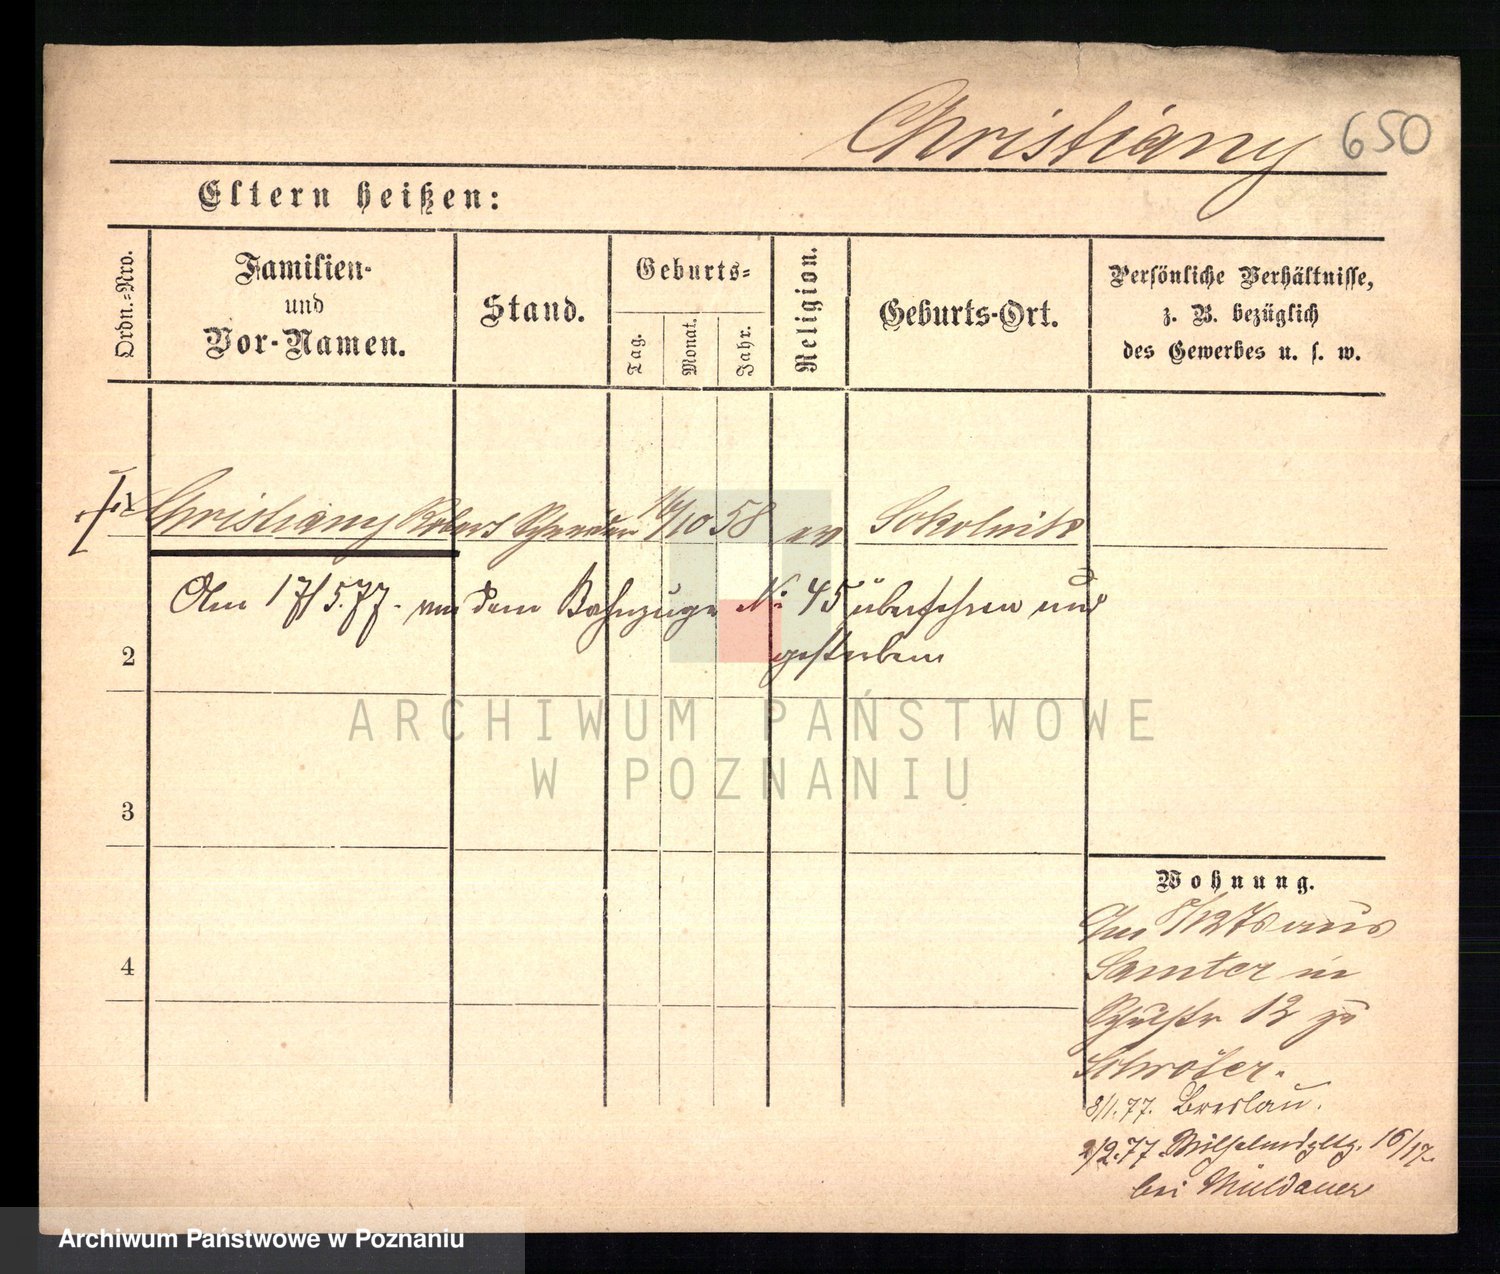 Christiany 650
Eltern heißen:
Ordn.-Nro.
Familien-
und
Vor-Namen.
Stand.
Geburts-
Tag.
Monat.
Jahr.
Religion.
Geburts-Ort.
Persönliche Verhältnisse,
z. B. bezüglich
des Gewerbes u. s. w.
1 Christiany Robert 10 58 ev Sokolnik
Am 17/5.77. von dem Bahnzuge No 45 überfahren und
gestorben
2
3
4
ARCHIWUM PAŃSTWOWE
W POZNANIU
Wohnung.
Am aus
Samter in
Schulstr 12 zu
Schröter.
8/1.77. Breslau.
2/2.77 16/17.
bei Muldauer
Archiwum Państwowe w Poznaniu